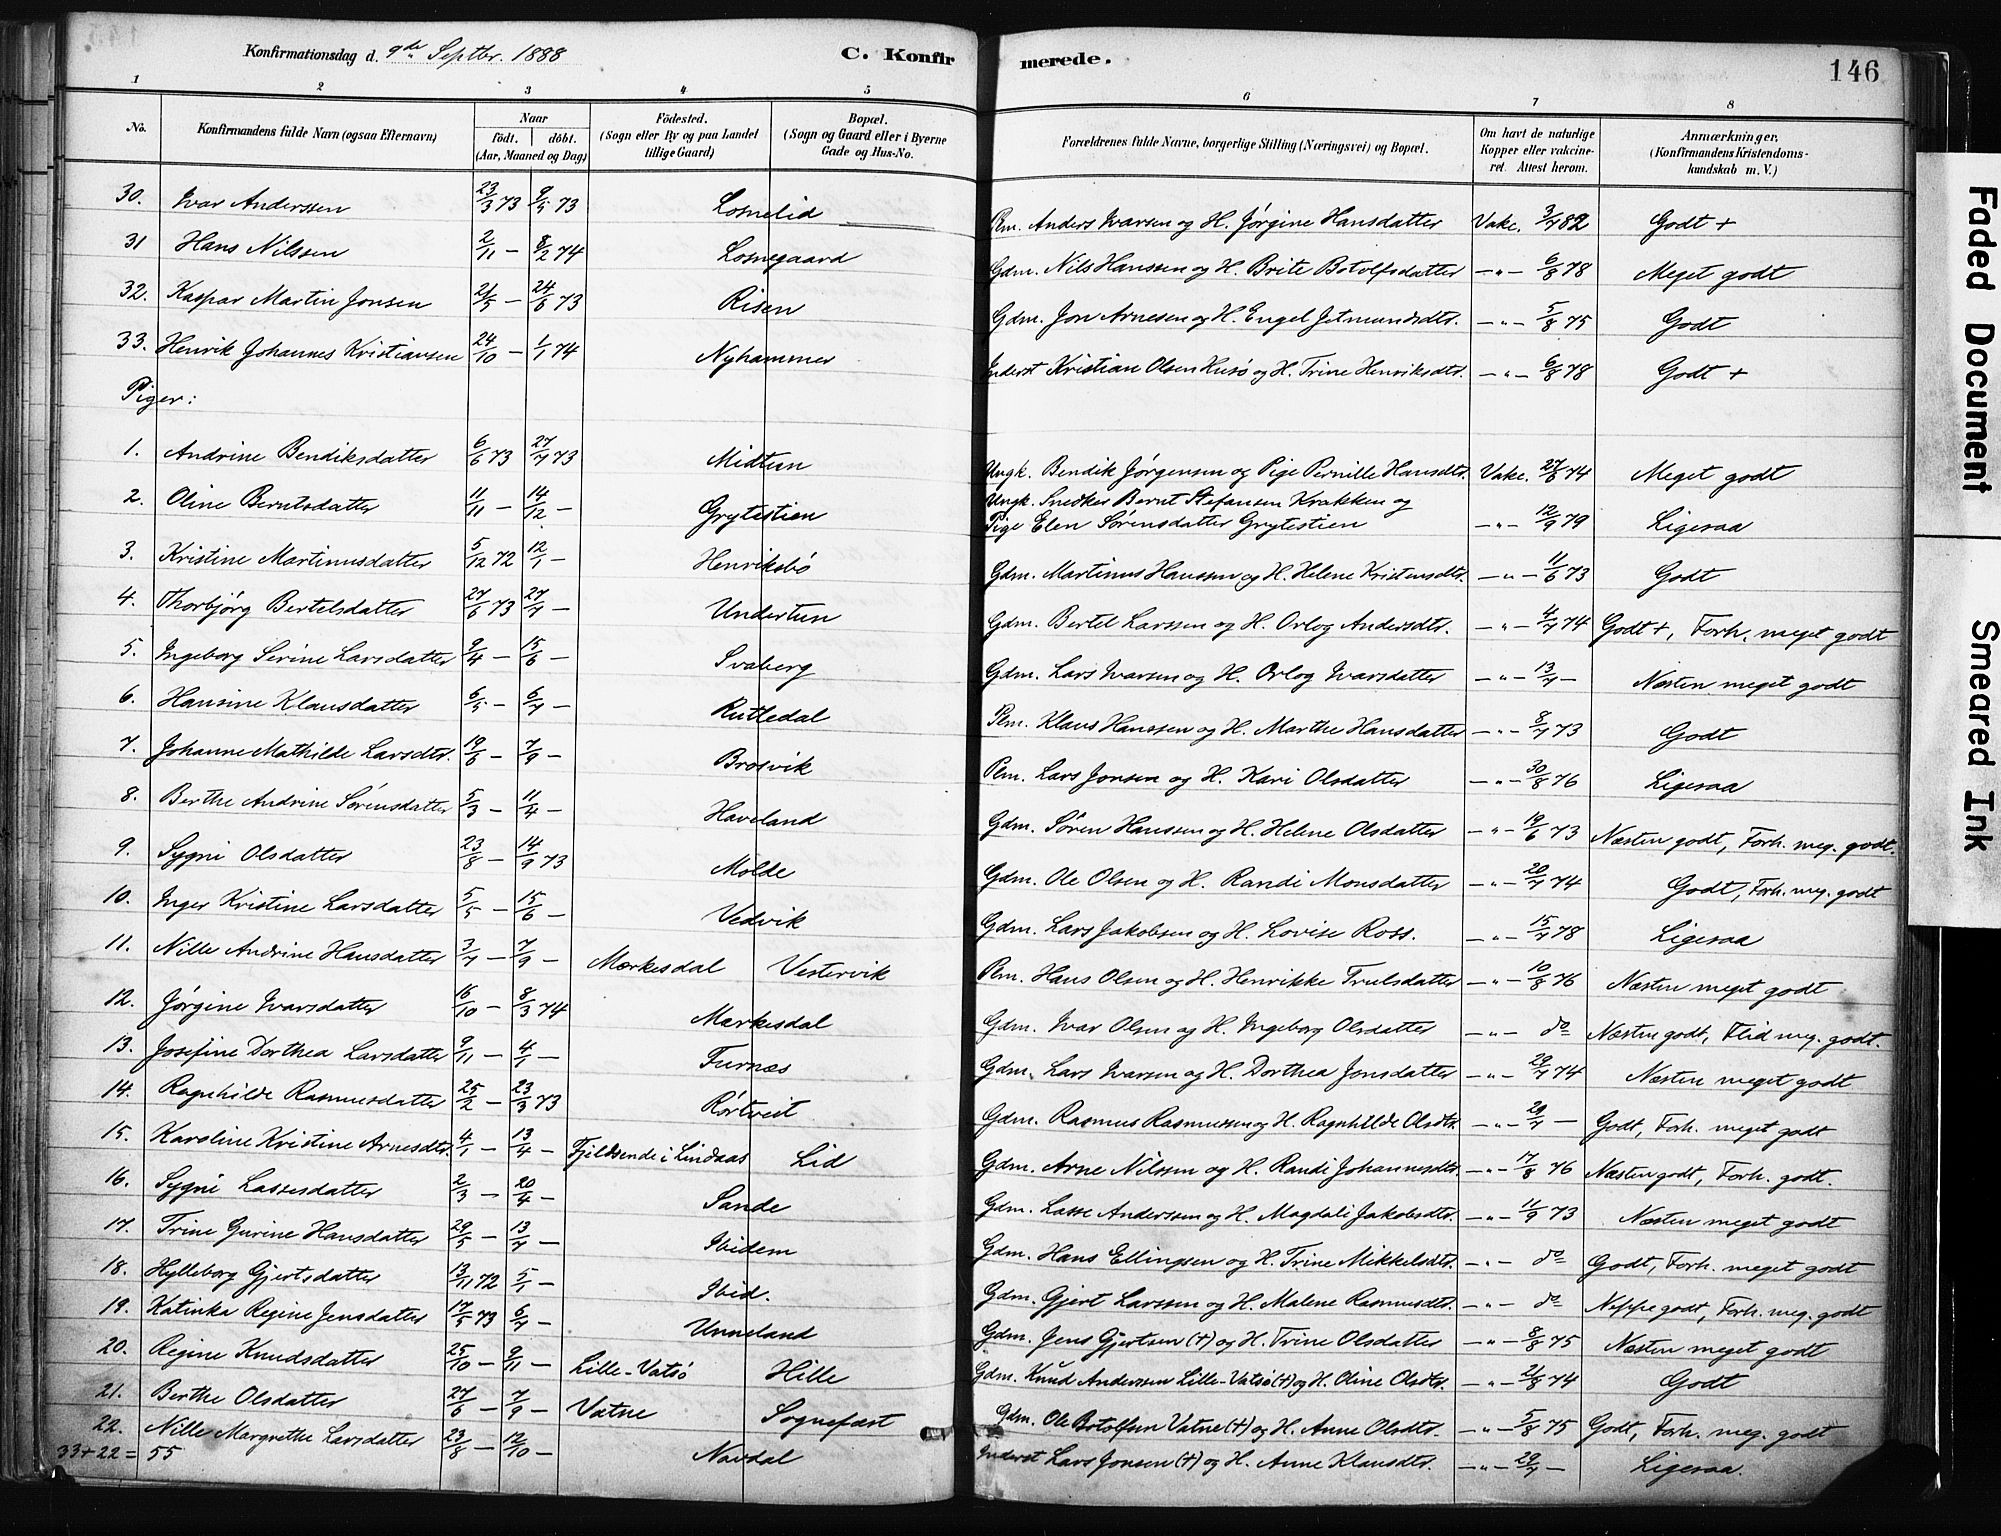 Konfirmationsdag d. 9de Septbr. 1888 C. Konfirmerede. 146
1 2 3 4 5 6 7 8
No. Konfirmandens fulde Navn (ogsaa Efternavn) Naar Födt. döbt. (Aar, Maaned og Dag) Födested. (Sogn eller By og paa Landet tillige Gaard) Bopæl. (Sogn og Gaard eller i Byerne Gade og Hus-No. Forældrenes fulde Navne, borgerlige Stilling (Næringsvei) og Bopæl. Om havt de naturlige Kopper eller vakcineret. Attest herom. Anmærkninger. (Konfirmandens Kristendomskundskab m. V.)
30. Ivar Anderssen 23/3 73 9/5 73 Losnelid Plm. Anders Ivarsen og H. Jørgine Hansdatter Vakc. 3/7 82 Godt +
31 Hans Nilssen 2/11 - 8/2 74 Losnegaard Gdm. Nils Hanssen og H. Brite Botolfsdatter -"- 6/8 78 Meget godt
32. Kaspar Martin Jonsen 21/5 - 24/6 73 Risen Gdm. Jon Arnesen og H. Engel Jetmundsdtr. -"- 5/8 75 Godt
33. Henrik Johannes Kristiansen 24/10 - 1/1 74 Nyhammer Inderst Kristian Olsen Husö og H. Trine Henriksdtr. -"- 6/8 78 Godt +
Piger:
1. Andrine Bendiksdatter 6/6 73 27/7 73 Midtun Ungk. Bendik Jørgensen og Pige Pernille Hansdtr. Vakc. 27/6 74 Meget godt
2. Oline Berntsdatter 11/11 - 14/12 - Grytestien Ungk. Snedker Bernt Stefansen Krakken og
Pige Elen Sørensdatter Grytestien -"- 12/9 79 Ligesaa
3. Kristine Martinusdatter 5/12 72 12/1 - Henriksbö Gdm. Martinus Hanssen og H. Helene Kristensdtr. -"- 11/6 73 Godt
4. Thorbjörg Bertelsdatter 27/6 73 27/7 - Undertun Gdm. Bertel Larssen og H. Orlog Andersdtr. -"- 4/7 74 Godt +, Forh. meget godt
5. Ingeborg Serine Larsdatter 9/4 - 15/6 - Svaberg Gdm. Lars Ivarsen og H. Orlog Ivarsdatter -"- 13/7 - Næsten meget godt
6. Hansine Klausdatter 6/5 - 6/7 - Rutledal Plm. Klaus Hanssen og H. Marthe Hansdatter -"- 8/7 73 Godt
7. Johanne Mathilde Larsdtr. 19/6 - 7/9 - Brosvik Plm. Lars Jonsen og H. Kari Olsdatter -"- 30/8 76 Ligesaa
8. Berthe Andrine Sørensdatter 5/3 - 11/4 - Haveland Gdm. Søren Hanssen og H. Helene Olsdatter -"- 19/6 73 Næsten godt, Forh. meg. godt.
9. Sygni Olsdatter 23/8 - 14/9 73 Molde Gdm. Ole Olsen og H. Randi Monsdatter -"- 20/7 74 Godt, Forh. meg. godt
10. Inger Kristine Larsdatter 5/5 - 15/6 - Vedvik Gdm. Lars Jakobsen og H. Lovise Ross. -"- 15/7 78 Ligesaa
11. Nille Andrine Hansdatter 3/7 - 7/9 - Mærkesdal Vestervik Plm. Hans Olsen og H. Henrikke Trulsdatter -"- 10/8 76 Næsten meget godt
12. Jørgine Ivarsdatter 16/10 - 8/3 74 Mærkesdal Gdm. Ivar Olsen og H. Ingeborg Olsdatter -"- do Næsten godt, Flid meg. godt.
13. Josefine Dorthea Larsdatter 9/11 - 4/1 - Furnæs Gdm. Lars Ivarsen og H. Dorthea Jonsdatter -"- 29/7 74 Næsten meget godt
14. Ragnhilde Rasmusdatter 25/2 - 23/3 73 Rörtveit Gdm. Rasmus Rasmussen og H. Ragnhilde Olsdtr. -"- 29/7 - Godt, Forh. meget godt
15. Karoline Kristine Arnesdtr. 4/1 - 13/4 - Fjeldsende i Lindaas Lid Gdm. Arne Nilssen og H. Randi Johannesdtr. -"- 17/8 76 Næsten godt, Forh. godt.
16. Sygni Lassesdatter 2/3 - 20/4 - Sande Gdm. Lasse Anderssen og H. Magdali Jakobsdtr. -"- 11/9 73 Næsten meget godt
17. Trine Gurine Hansdatter 29/5 - 13/7 - Ibidem Gdm. Hans Ellingsen og H. Trine Mikkelsdtr. -"- do Godt, Forh. meget godt
18. Hylleborg Gjertsdatter 13/11 72 5/1 - Ibid. Gdm. Gjert Larssen og H. Malene Rasmusdtr. -"- do Neppe godt, Forh. meg. godt
19. Katinka Regine Jensdatter 17/5 73 6/7 - Unneland Gdm. Jens Gjertsen (+) og H. Trine Olsdatter -"- 8/8 75 Næsten meget godt
20. Regine Knudsdatter 25/10 - 9/11 - Lille-Vatsö Hille Gdm. Knud Anderssen Lille-Vatsö (+) og H. Oline Olsdtr. -"- 21/8 74 Godt
21. Berthe Olsdatter 27/6 - 7/9 - Vatne Sognefæst Gdm. Ole Botolfsen Vatne (+) og H. Anne Olsdtr. -"- 5/8 75 Godt, Forh. meg. godt
22. Nille Margrethe Larsdatter 23/8 - 12/10 - Navdal Inderst Lars Jonsen (+) og H. Anne Klausdtr. -"- 29/7 - Ligesaa.
33 + 22 = 55
Faded Document
Smeared Ink